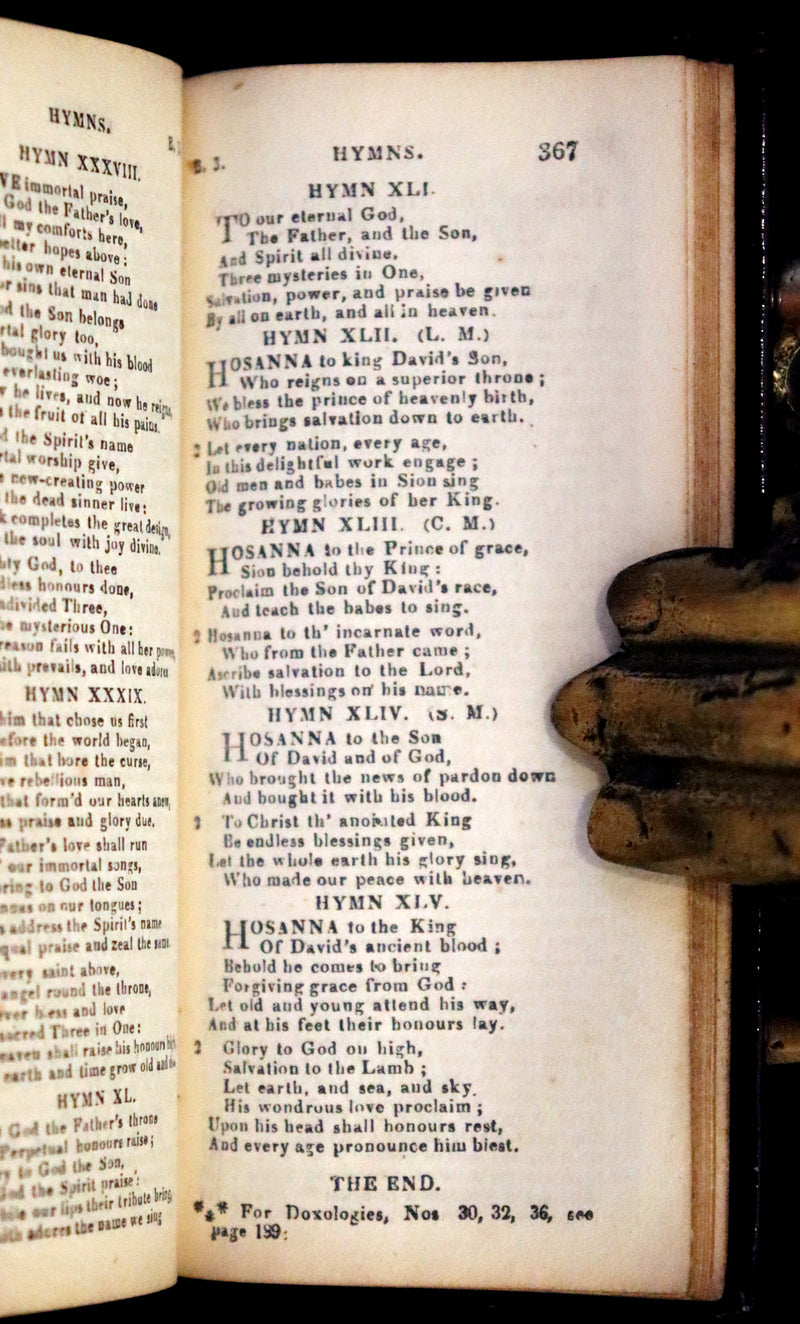 HYMNS.
HYMN XXXVIII.
immortal praise,
God the Father's love,
my comforts here,
hopes above;
his own eternal Son
sins that man had done
the Son belongs
glory too,
bought us with his blood
everlasting woe;
he lives, and now he reigns,
the fruit of all his pains.
the Spirit's name
worship give,
new-creating power
the dead sinner live:
completes the great design,
the soul with joy divine.
God, to thee
honours done,
Three,
mysterious One:
reason fails with all her
prevails, and love
HYMN XXXIX.
him that chose us first
before the world began,
that bore the curse,
rebellious man,
that form'd our hearts anew,
praise and glory due.
Father's love shall run
our immortal songs,
to God the Son
on our tongues;
address the Spirit's name
praise and zeal the same
every saint above,
angel round the throne,
bless and love
sacred Three in One:
shall raise his honours
earth and time grow old and
HYMN XL.
God the Father's throne
Perpetual honours raise;
to God the Son,
the Spirit praise:
our lips their tribute bring,
adores the name we sing
B. 3. HYMNS. 367
HYMN XLI.
TO our eternal God,
The Father, and the Son,
And Spirit all divine,
Three mysteries in One,
Salvation, power, and praise be given
By all on earth, and all in heaven.
HYMN XLII. (L. M.)
HOSANNA to king David's Son,
Who reigns on a superior throne;
We bless the prince of heavenly birth,
Who brings salvation down to earth.
2 Let every nation, every age,
In this delightful work engage;
Old men and babes in Sion sing
The growing glories of her King.
HYMN XLIII. (C. M.)
HOSANNA to the Prince of grace,
Sion behold thy King:
Proclaim the Son of David's race,
And teach the babes to sing.
2 Hosanna to th' incarnate word,
Who from the Father came;
Ascribe salvation to the Lord,
With blessings on his name.
HYMN XLIV. (S. M.)
HOSANNA to the Son
Of David and of God,
Who brought the news of pardon down
And bought it with his blood.
2 To Christ th' anointed King
Be endless blessings given,
Let the whole earth his glory sing,
Who made our peace with heaven.
HYMN XLV.
HOSANNA to the King
Of David's ancient blood;
Behold he comes to bring
Forgiving grace from God:
Let old and young attend his way,
And at his feet their honours lay.
2 Glory to God on high,
Salvation to the Lamb;
Let earth, and sea, and sky,
His wondrous love proclaim;
Upon his head shall honours rest,
And every age pronounce him blest.
THE END.
*** For Doxologies, Nos 30, 32, 36, see
page 189: